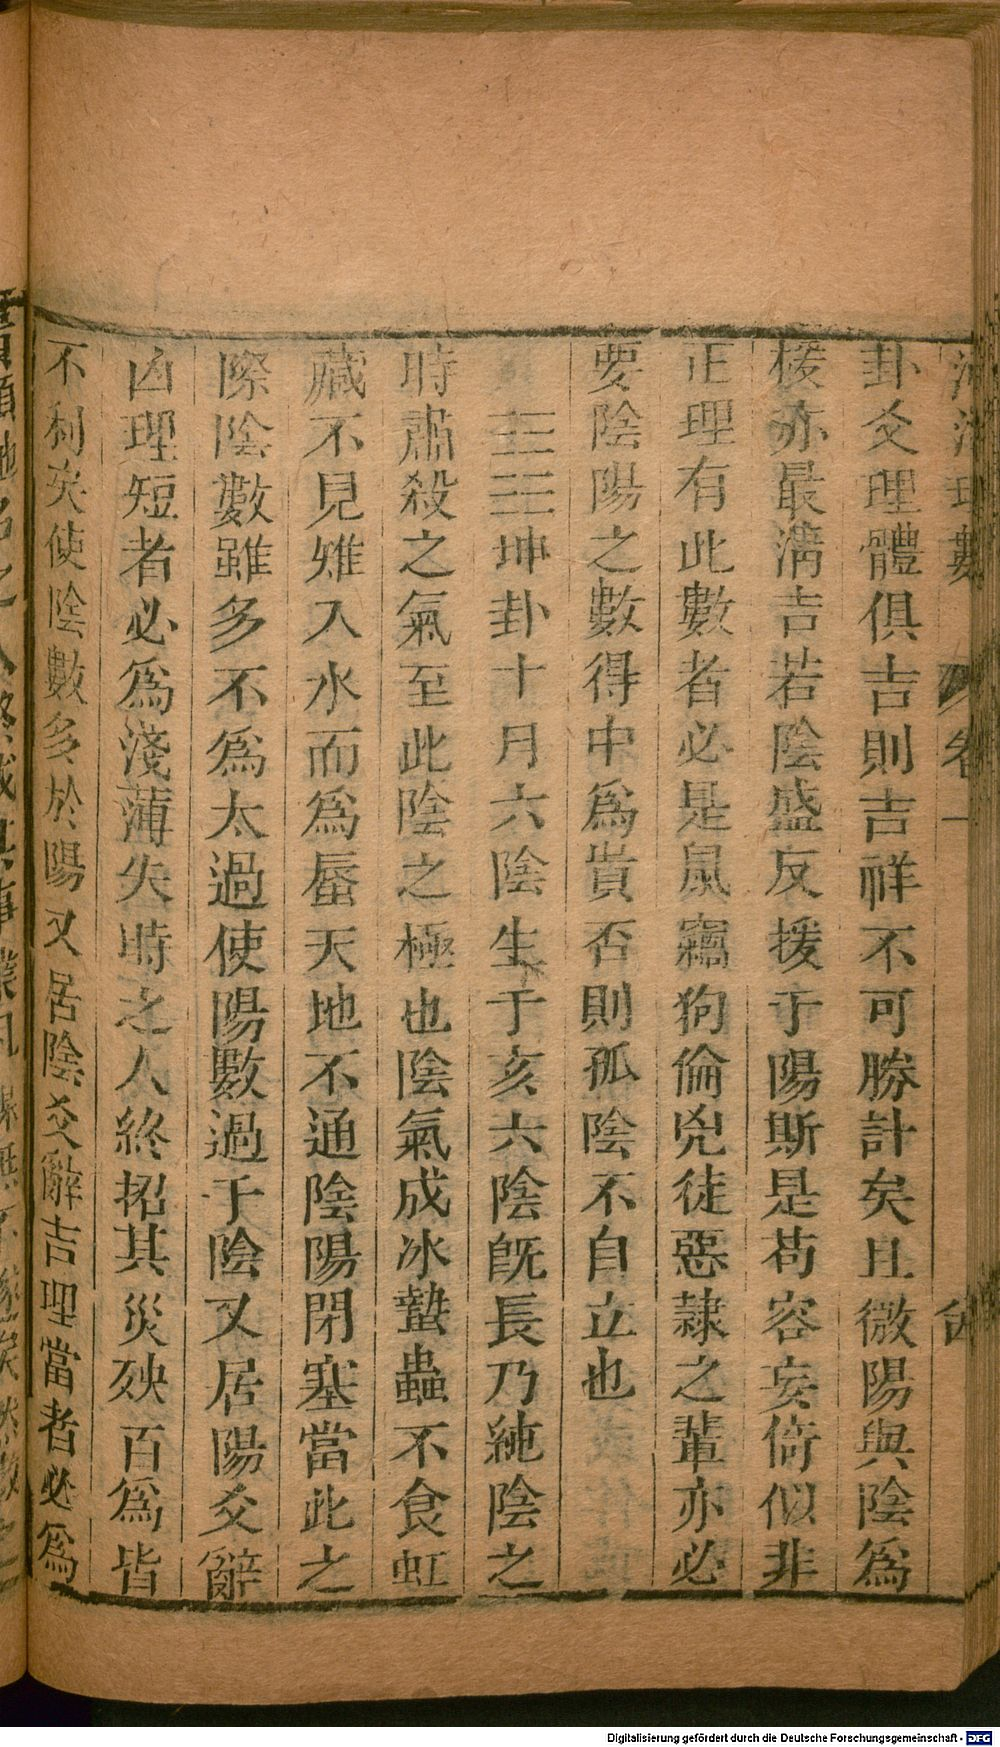 卦爻理體俱吉則吉祥不可勝計矣且微陽與陰爲
亦最溝吉若陰盛反援于陽斯是茍容妄倚似非
正理有此數者必是鼠竊狗倫兇徒惡隷之輩亦必
要陰陽之數得中爲貴否則孤陰不自立也
坤卦十月六陰生于亥六陰旣長乃純陰之
時肅殺之氣至此陰之極也陰氣成冰蟄蟲不食虹
藏不見雉入水而爲蜃天地不通陰陽閉塞當此之
際陰數雖多不爲太過使陽數過于陰又居陽爻辭
凶理短者必爲淺薄失時之人終招其災殃百爲皆
不利矣使陰數多於陽又居陰爻辭吉理當者必爲
卷一
Digitalisierung gefördert durch die Deutsche Forschungsgemeinschaft - DFG